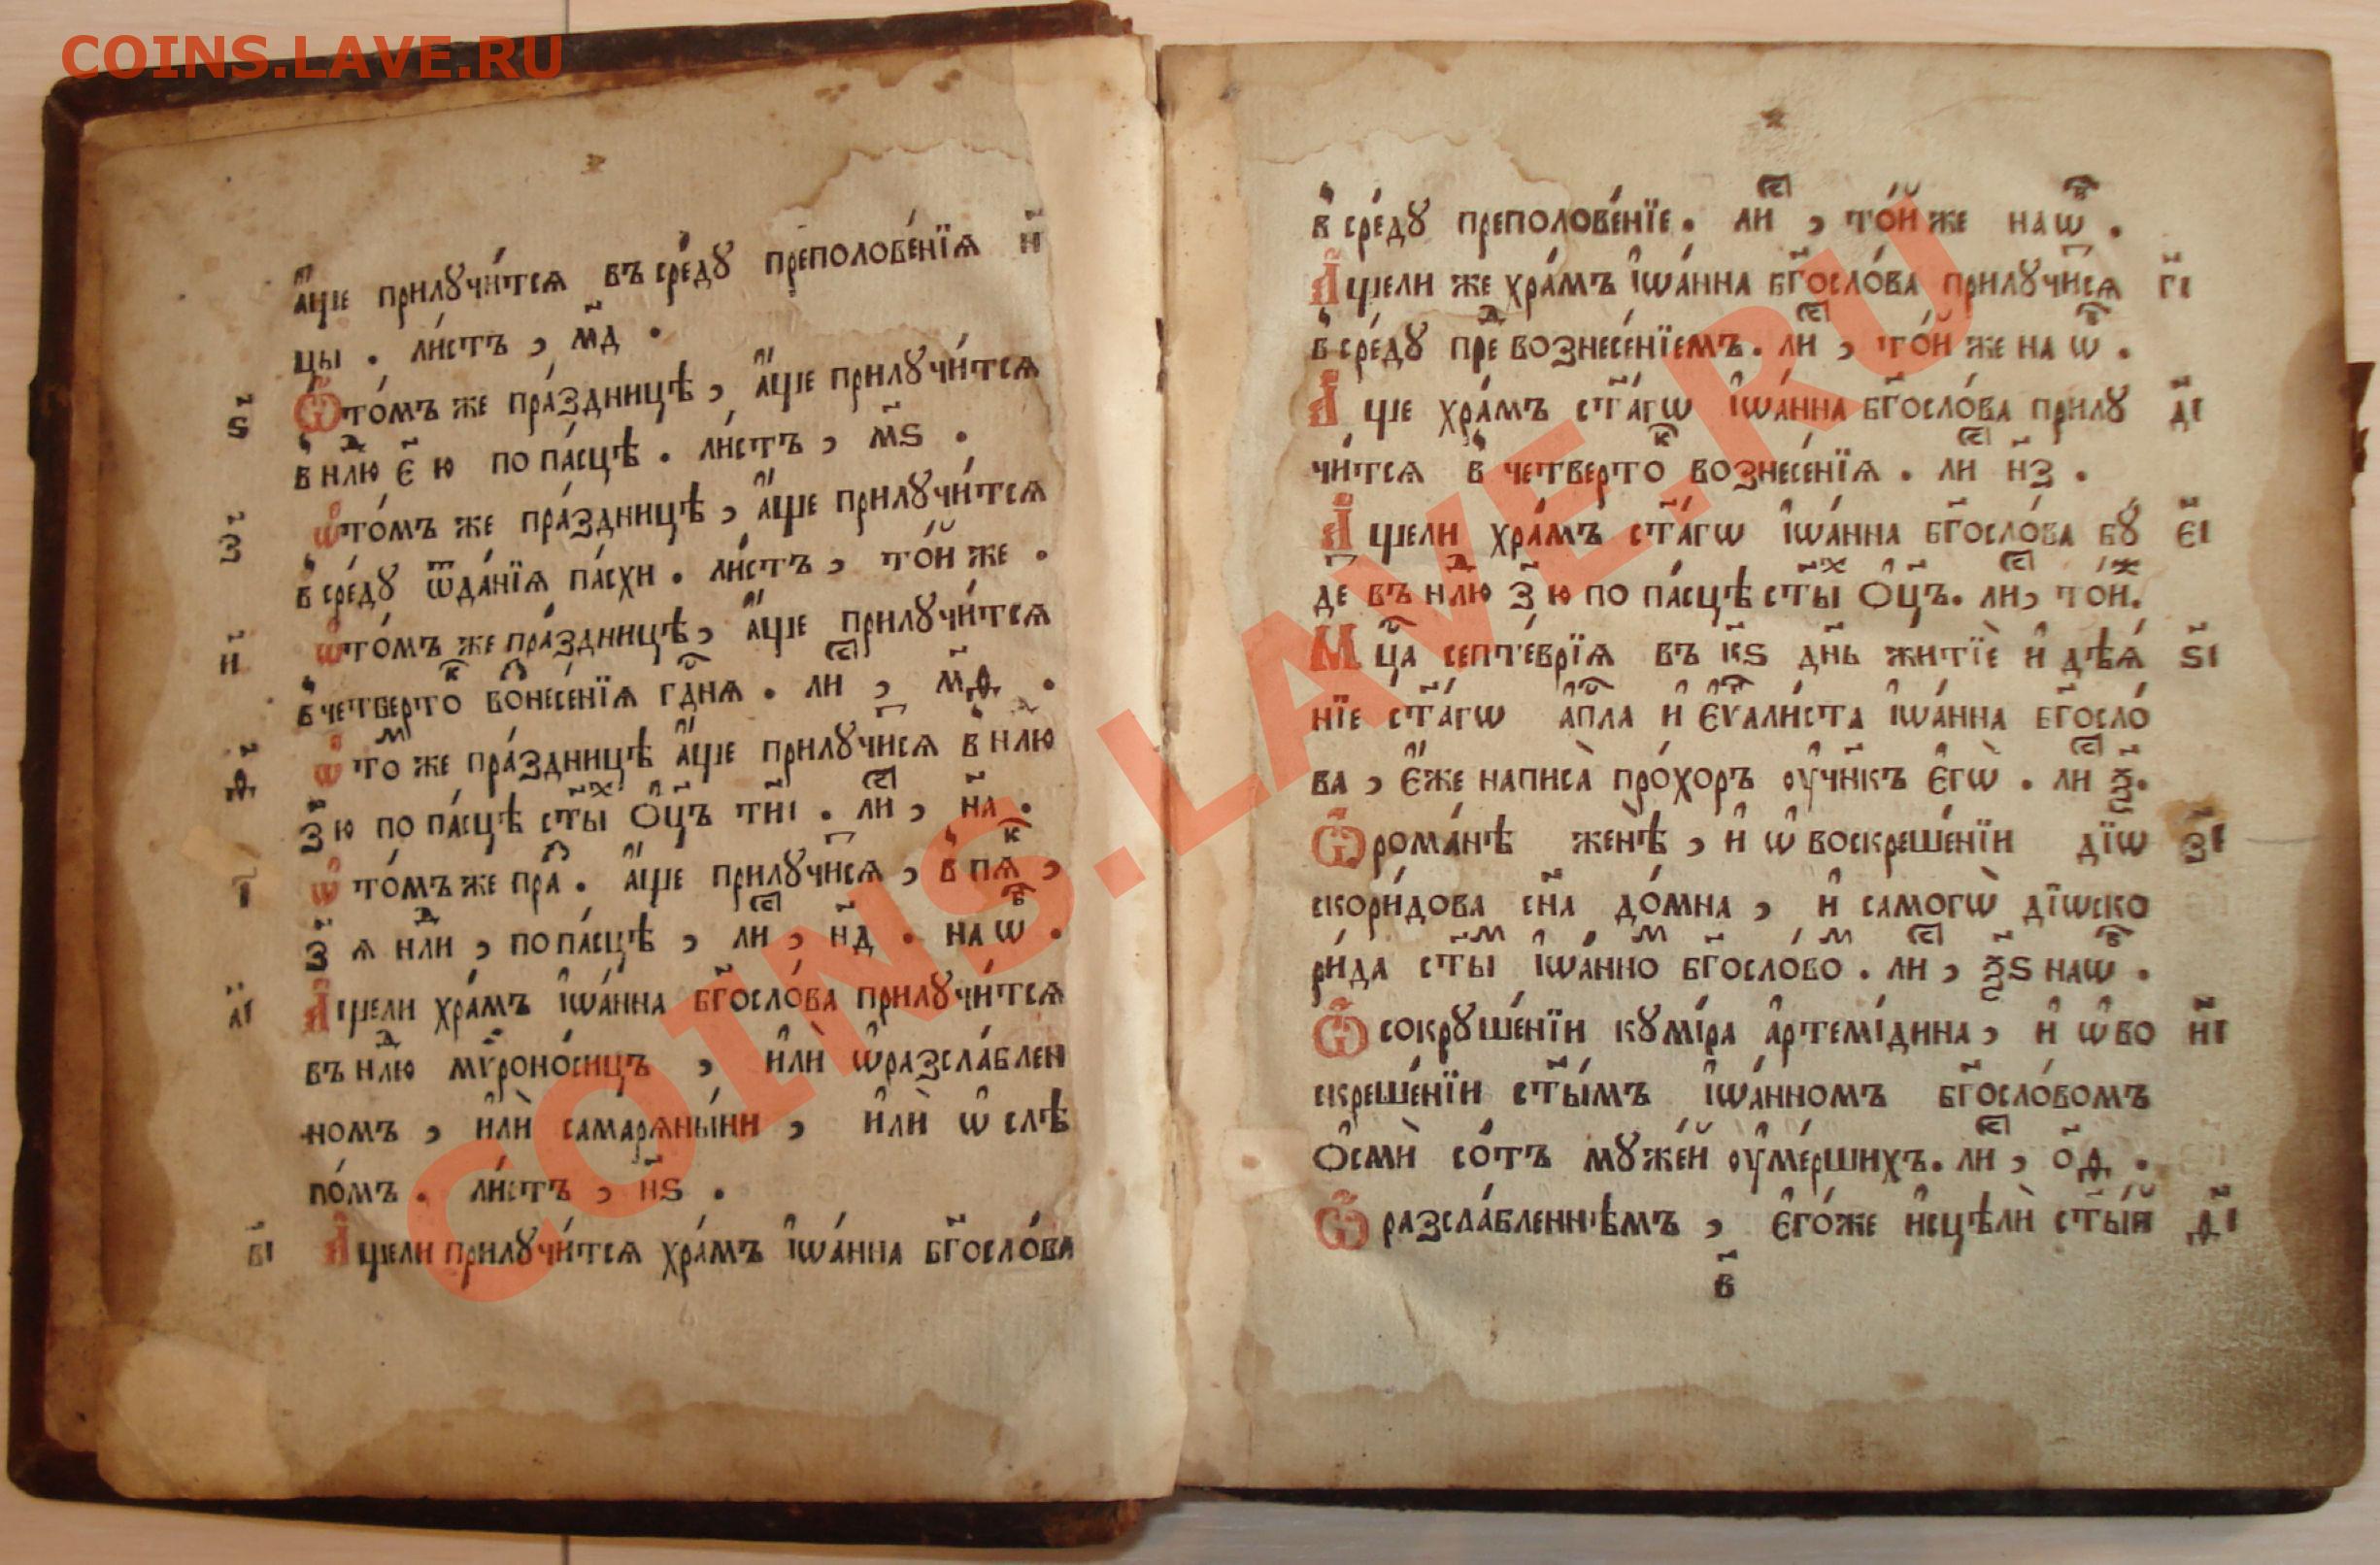 COINS.LAVE.RU
а҆́ще прилꙋчи́тсѧ въ сре́дꙋ преполове́нїѧ н҃
цы . ли́стъ , м҃д .
ѕ҃ Ѡ҆ то́мъ же пра́здницѣ , а҆́ще прилꙋчи́тсѧ
в нⷣлю є҃ ю по па́сцѣ . ли́стъ , м҃ѕ .
з҃ ѡ҆ то́мъ же пра́здницѣ , а҆́ще прилꙋчи́тсѧ
в сре́дꙋ ѿда́нїѧ па́схи . ли́стъ , то́й же .
и҃ ѡ҆ то́мъ же пра́здницѣ , а҆́ще прилꙋчи́тсѧ
в четверто́ⷦ воⷥнесе́нїѧ гⷭднѧ . лиⷭ , м҃ѳ .
ѳ҃ ѡ҆ тоⷨ же пра́здницѣ а҆́ще прилꙋчи́ⷮсѧ в нлю
з҃ ю по па́сцѣ ст҃ыⷯ ѻ҆ц҃ъ ти҃і . лиⷭ , н҃а .
і҃ ѡ҆ то́мъ же праⷥ . а҆́ще прилꙋчи́ⷮсѧ , в пѧⷦ ,
з҃ ѧ нⷣли , по па́сцѣ , лиⷭ , н҃д . на ѡⷠ .
а҃і А҆́щели хра́мъ і҆ѡа́нна бг҃осло́ва прилꙋчи́тсѧ
въ нⷣлю мѵроно́сицъ , и҆лѝ ѡ҆ разсла́блен
номъ , и҆лѝ самарѧны́ни , и҆лѝ ѡ҆ слѣ
по́мъ . ли́стъ , н҃ѕ .
в҃і А҆́щели прилꙋчи́тсѧ хра́мъ і҆ѡа́нна бг҃осло́ва
в сре́дꙋ преполове́нїе . лиⷭ , то́й же на ѡⷠ .
А҆́щели же хра́мъ і҆ѡа́нна бг҃осло́ва прилꙋчи́ⷮсѧ г҃і
в сре́дꙋ преⷣ вознесе́нїемъ . лиⷭ , то́й же на ѡⷠ .
А҆́ще хра́мъ ст҃а́гѡ і҆ѡа́нна бг҃осло́ва прилꙋ д҃і
чи́тсѧ в четверто́ⷦ вознесе́нїѧ . лиⷭ н҃з .
А҆́щели хра́мъ ст҃а́гѡ і҆ѡа́нна бг҃осло́ва бꙋ́ є҃і
де въ нⷣлю з҃ ю по па́сцѣ ст҃ыⷯ ѻ҆ц҃ъ . лиⷭ , то́йⷤ .
Мцⷭа септе́врїѧ въ к҃ѕ дн҃ь житїѐ и҆ дѣѧ́ ѕ҃і
нїе ст҃а́гѡ а҆пⷭла и҆ є҆ѵⷢали́ста і҆ѡа́нна бг҃осло́
ва , є҆́же написа̀ про́хоръ ᲂу҆чн҃къ є҆гѡ̀ . лиⷭ ѯ҃ .
Ѡ҆ рома́нѣ женѣ̀ , и҆ ѡ҆ воскреше́нїи дїѡ з҃і
скори́дова сн҃а до́мна , и҆ самогѡ̀ дїѡско
ри́да ст҃ыⷨ і҆ѡа́нноⷨ бг҃осло́воⷨ . лиⷭ , ѯ҃ѕ на ѡⷠ .
Ѡ҆ сокрꙋше́нїи кꙋмі́ра а҆ртемі́дина , и҆ ѡ҆ во и҃і
скреше́нїи ст҃ы́мъ і҆ѡа́нномъ бг҃осло́вомъ
ѻ҆смѝ со́тъ мꙋже́й ᲂу҆ме́ршихъ . лиⷭ , о҃ѳ .
Ѡ҆ разсла́бленнѣмъ , є҆го́же и҆сцѣлѝ ст҃ы́й ѳ҃і
в҃
COINS.LAVE.RU